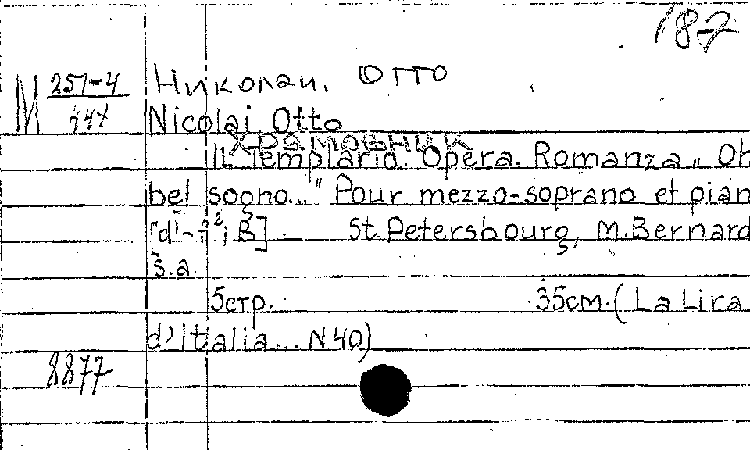 187
Николаи, Отто
M 251-4
447
Nicolai Otto
Храмовник
Il Templario. Opera. Romanza „Oh
bel sogno..." Pour mezzo-soprano et pian
St. Petersbourg, M. Bernard
s.a.
5стр. 35см. (La Lira
d'Italia... N 40)
8877